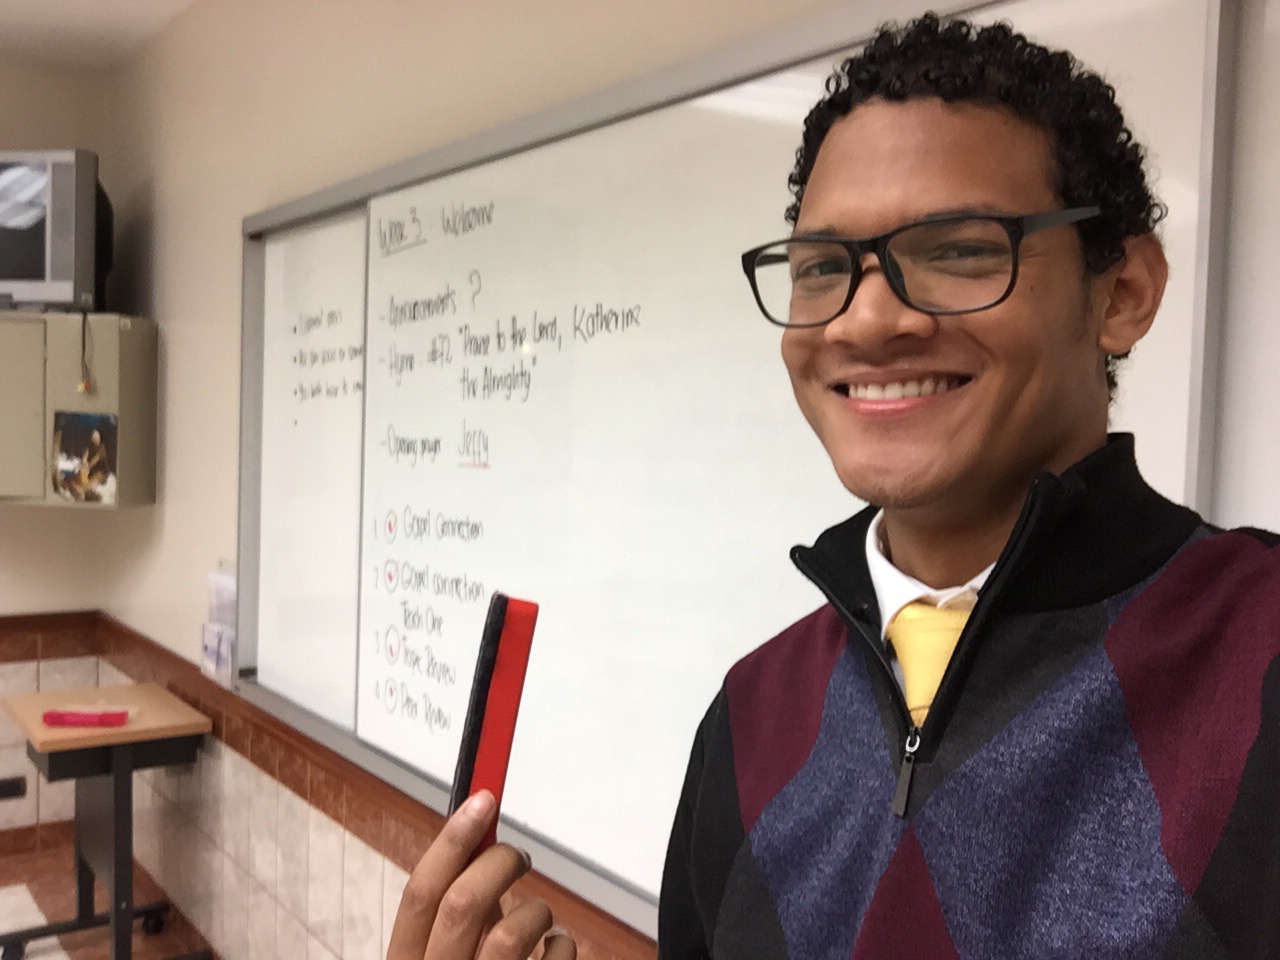 Week 3 Welcome
- Announcements ?
- Hymn: #72 "Praise to the Lord, Katherine
the Almighty"
- Opening prayer Jeffy
1 Gospel Connection
2 Gospel connection
Teach One
3 Topic Review
4 Peer Review